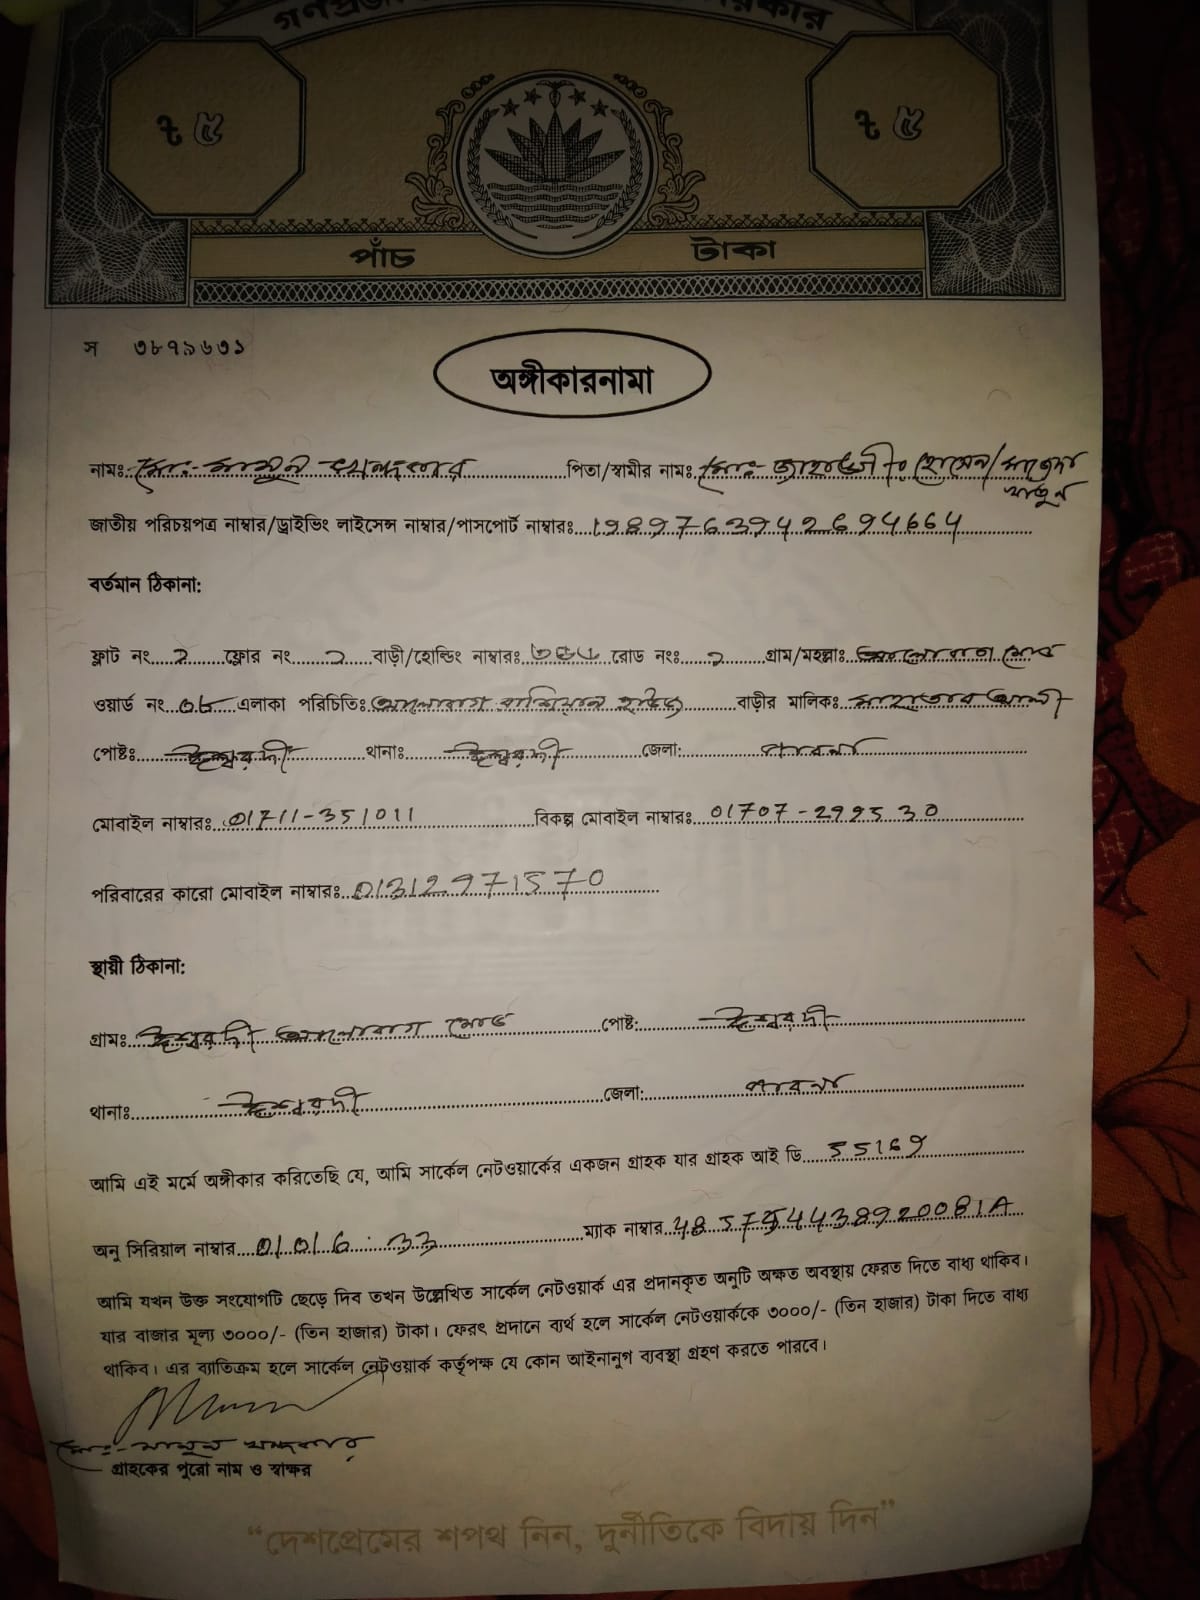 পাঁচ টাকা
৳ ৫ ৳ ৫
স ৩৮৭৯৬৩১
অঙ্গীকারনামা
নামঃ মোঃ- মামুন খন্দকার পিতা/স্বামীর নামঃ মোঃ- হোসেন/
খাতুন
জাতীয় পরিচয়পত্র নাম্বার/ড্রাইভিং লাইসেন্স নাম্বার/পাসপোর্ট নাম্বারঃ 1989763942694664
বর্তমান ঠিকানা:
ফ্লাট নং ২ ফ্লোর নং ২ বাড়ী/হোল্ডিং নাম্বারঃ রোড নংঃ গ্রাম/মহল্লাঃ মোড়
ওয়ার্ড নং ০৮ এলাকা পরিচিতিঃ বাড়ীর মালিকঃ আলী
পোষ্টঃ ঈশ্বরদী থানাঃ ঈশ্বরদী জেলা: পাবনা
মোবাইল নাম্বারঃ 01711-351011 বিকল্প মোবাইল নাম্বারঃ 01707-299530
পরিবারের কারো মোবাইল নাম্বারঃ 01312971570
স্থায়ী ঠিকানা:
গ্রামঃ ঈশ্বরদী আলোবাগ মোড় পোষ্ট: ঈশ্বরদী
থানাঃ ঈশ্বরদী জেলা: পাবনা
আমি এই মর্মে অঙ্গীকার করিতেছি যে, আমি সার্কেল নেটওয়ার্কের একজন গ্রাহক যার গ্রাহক আই ডি 55169
অনু সিরিয়াল নাম্বার 01016.33 ম্যাক নাম্বার
আমি যখন উক্ত সংযোগটি ছেড়ে দিব তখন উল্লেখিত সার্কেল নেটওয়ার্ক এর প্রদানকৃত অনুটি অক্ষত অবস্থায় ফেরত দিতে বাধ্য থাকিব।
যার বাজার মূল্য ৩০০০/- (তিন হাজার) টাকা। ফেরৎ প্রদানে ব্যর্থ হলে সার্কেল নেটওয়ার্ককে ৩০০০/- (তিন হাজার) টাকা দিতে বাধ্য
থাকিব। এর ব্যাতিক্রম হলে সার্কেল নেটওয়ার্ক কর্তৃপক্ষ যে কোন আইনানুগ ব্যবস্থা গ্রহণ করতে পারবে।
মোঃ- মামুন খন্দকার
গ্রাহকের পুরো নাম ও স্বাক্ষর
“দেশপ্রেমের শপথ নিন, দুর্নীতিকে বিদায় দিন”